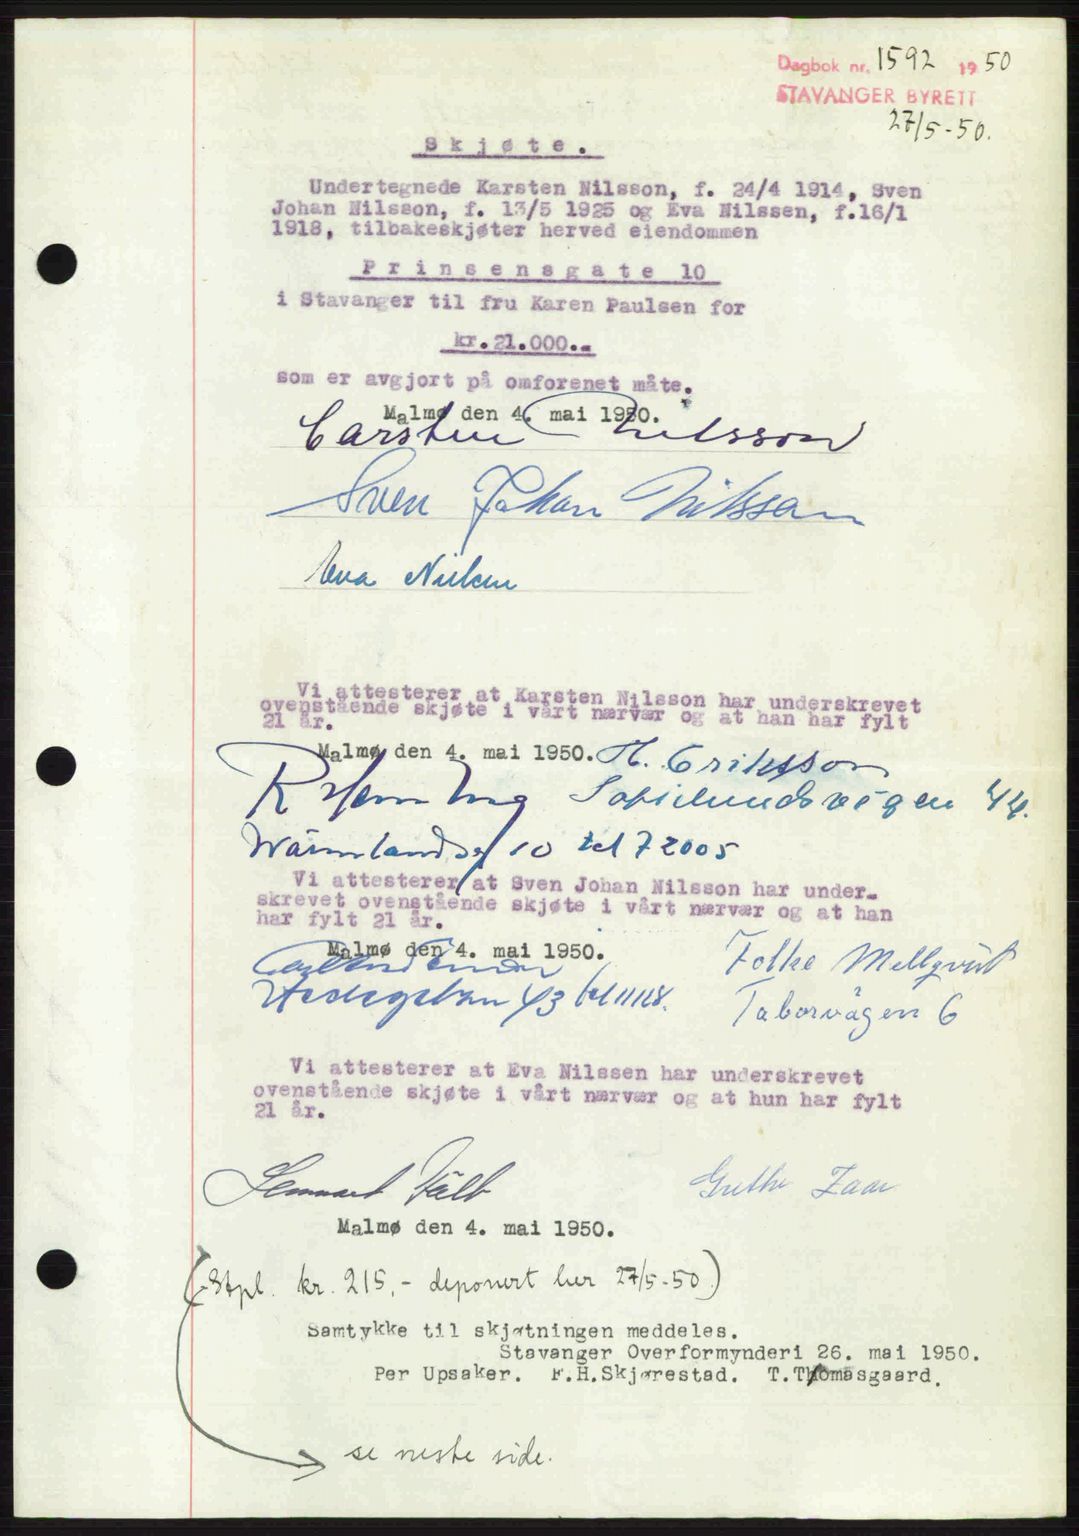 Dagbok nr. 1592 1950
STAVANGER BYRETT
27/5-50.
Skjøte.
Undertegnede Karsten Nilsson, f. 24/4 1914, Sven
Johan Nilsson, f. 13/5 1925 og Eva Nilssen, f.16/1
1918, tilbakeskjøter herved eiendommen
Prinsensgate 10
i Stavanger til fru Karen Paulsen for
kr.21.000.-
som er avgjort på omforenet måte.
Malmø den 4. mai 1950.
Carsten Nilsson
Sven Johan Nilsson
Eva Nilsen
Vi attesterer at Karsten Nilsson har underskrevet
ovenstående skjøte i vårt nærvær og at han har fylt
21 år.
Malmø den 4. mai 1950. H. Eriksson
Sofielundsvägen 44.
10 tel 72005
Vi attesterer at Sven Johan Nilsson har under-
skrevet ovenstående skjøte i vårt nærvær og at han
har fylt 21 år.
Malmø den 4. mai 1950.
Folke Mellqvist
43 tel 11118.
Taborvägen 6
Vi attesterer at Eva Nilssen har underskrevet
ovenstående skjøte i vårt nærvær og at hun har fylt
21 år.
Lennart Fält
Grethe Zaar
Malmø den 4. mai 1950.
(Stpl. kr. 215,- deponert her 27/5-50)
Samtykke til skjøtningen meddeles.
Stavanger Overformynderi 26. mai 1950.
Per Upsaker. F.H.Skjørestad. T.Thomasgaard.
se neste side.